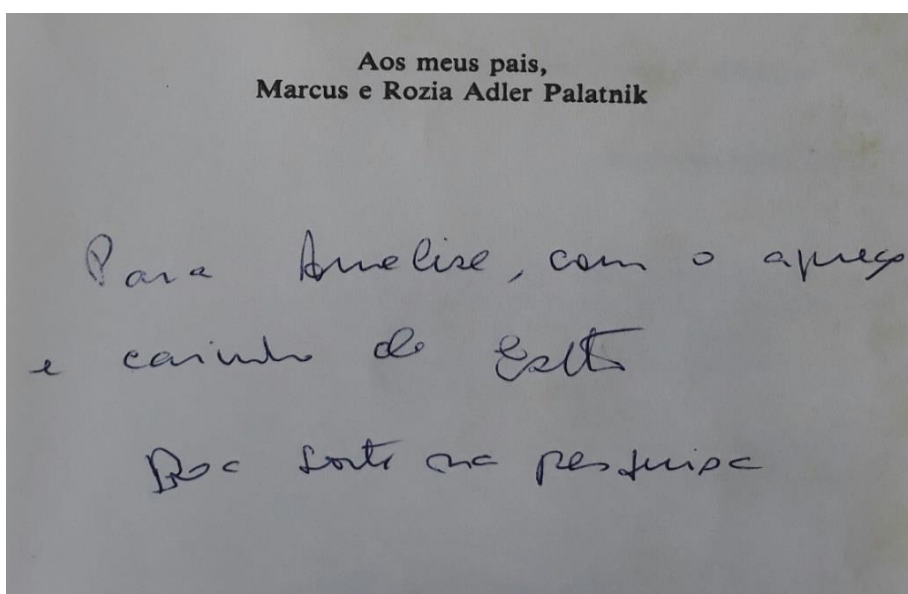 Aos meus pais,
Marcus e Rozia Adler Palatnik
Para Anelise, com o apreço
e carinho de Esther
Boa sorte na pesquisa